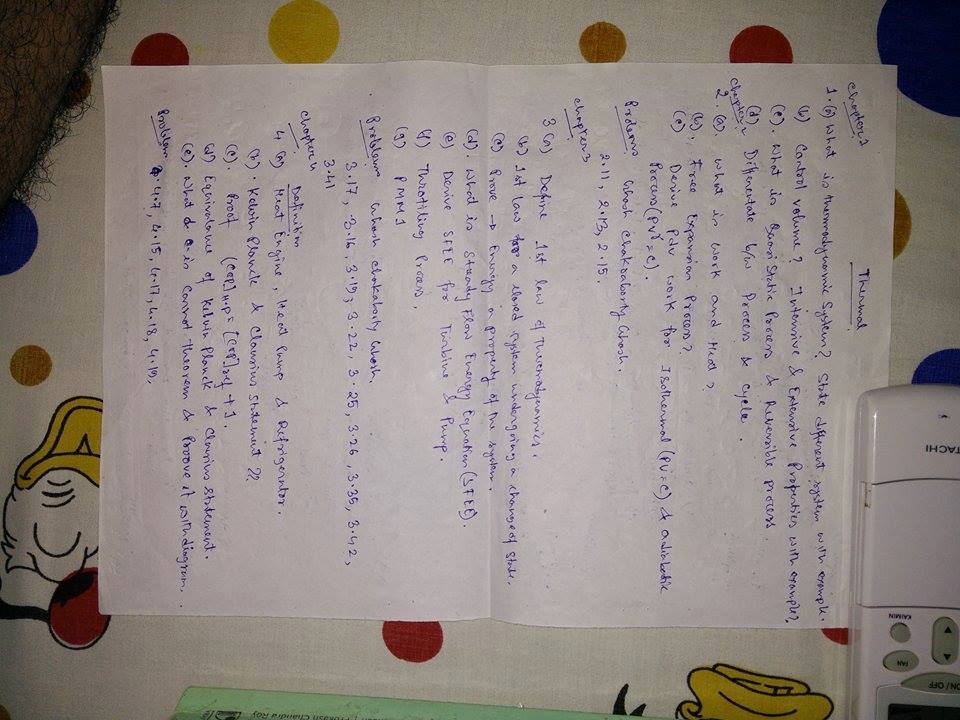 Thermal
Chapter 1
1. (a) What is thermodynamic System? State different system with example.
(b) Control volume? Intensive & Extensive Properties with example?
(c). What is Quasi Static Process & Reversible process.
(d) Differentiate b/w Process & cycle.
Chapter 2
2. (a) What is work and Heat?
(b), Free Expansion Process?
(c) Derive Pdv work for Isothermal (PV=C) & adiabatic
Process (PVᵞ=C).
Problems Ghosh Chakraborty Ghosh.
2.11, 2.13, 2.15.
Chapter 3
3 (a) Define 1st law of Thermodynamics.
(b) 1st law for a closed system undergoing a change of state.
(c) Prove → Energy a property of the system.
(d). What is Steady Flow Energy Equation (SFEE).
(e) Derive SFEE for Turbine & Pump.
(f) Throttling Process.
(g) PMM 1
Problem Ghosh Chakraborty Ghosh.
3.17, 3.16, 3.19, 3.22, 3.25, 3.26, 3.35, 3.42,
3.41
Chapter 4
Definition
4 (a) Heat Engine, Heat Pump & Refrigerator.
(b) Kelvin Planck & Clausius Statement
(c). Proof (COP)H.P = [COP]ref + 1.
(d) Equivalence of Kelvin Planck & Clausius Statement.
(e). What is Carnot Theorem & Proove it with diagram.
Problem 4.7, 4.15, 4.17, 4.18, 4.19,
HITACHI
KAIMIN
FAN
ON / OFF
Prokash Chandra Roy